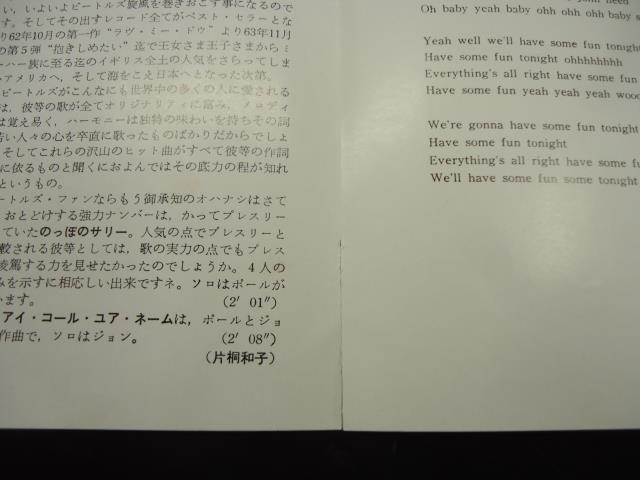 い，いよいよビートルズ旋風を巻きおこす事になるので
す。そしてその出すレコード全てがベスト・セラーとな
り62年10月の第一作“ラヴ・ミー・ドウ”より63年11月
の第５弾“抱きしめたい”迄で王女さま王子さまからミ
ーハー族に至る迄のイギリス全土の人気をさらってしま
いアメリカへ，そして海をこえ日本へとなった次第。
ビートルズがこんなにも世界中の多くの人に愛される
は，彼等の歌が全てオリジナリティに富み，メロディ
は覚え易く，ハーモニーは独特の味わいを持ちその詞
若い人々の心を卒直に歌ったものばかりだからでしょ
そしてこれらの沢山のヒット曲がすべて彼等の作詞
に依るものと聞くにおよんではその底力の程が知れ
というもの。
ートルズ・ファンならもう御承知のオハナシはさて
おとどけする強力ナンバーは，かってプレスリー
ていたのっぽのサリー。人気の点でプレスリーと
較される彼等としては，歌の実力の点でもプレス
凌罵する力を見せたかったのでしょうか。４人の
みを示すに相応しい出来ですネ。ソロはポールが
います。 (2′ 01″)
アイ・コール・ユア・ネームは，ポールとジョ
作曲で，ソロはジョン。 (2′ 08″)
(片桐和子)
Oh baby yeah baby ohh ohh ohh baby s
Yeah well we'll have some fun tonigh
Have some fun tonight ohhhhhhhh
Everything's all right have some fun
Have some fun yeah yeah yeah wooo
We're gonna have some fun tonight
Have some fun tonight
Everything's all right have some fu
We'll have some fun some tonight